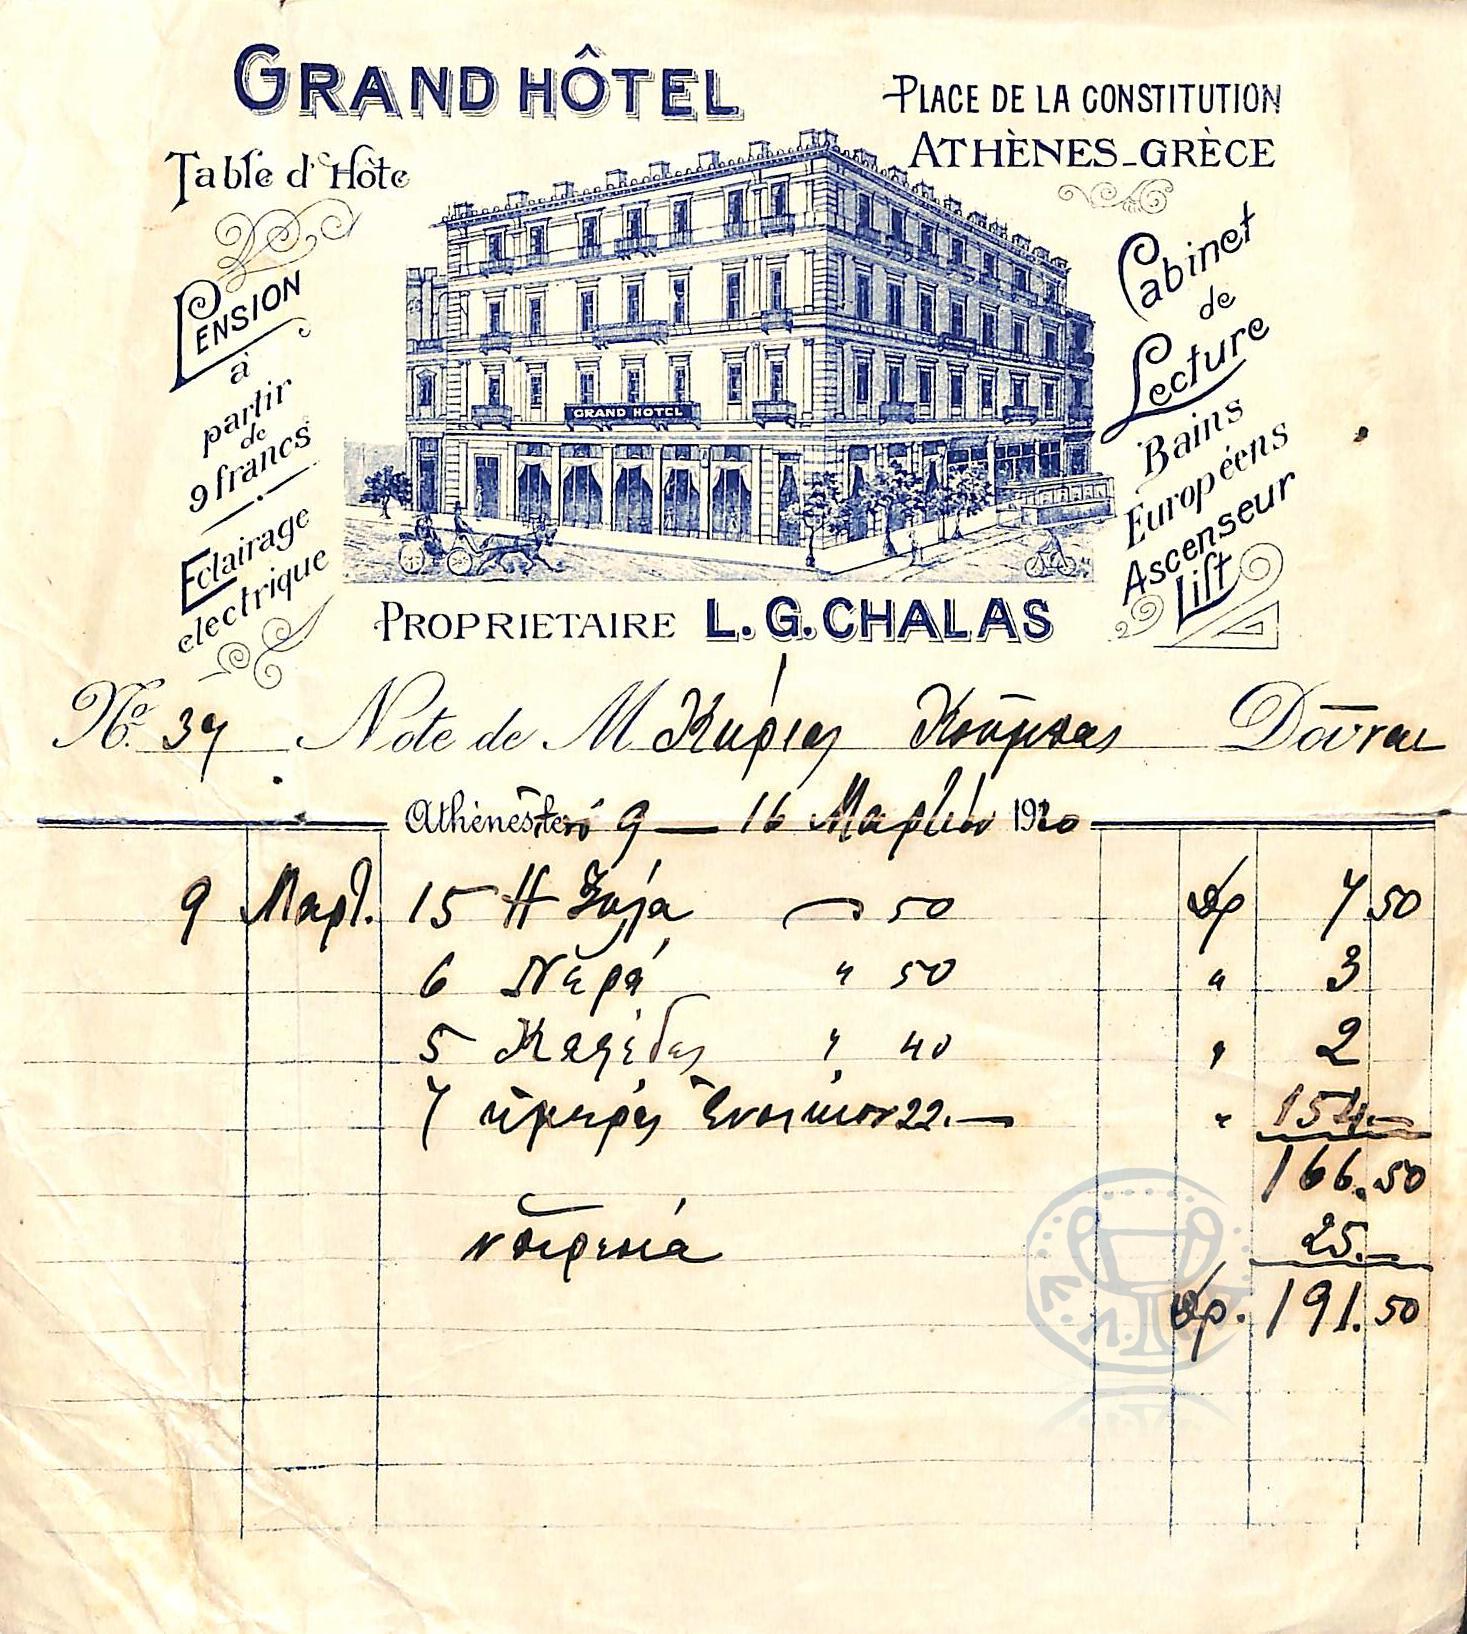 GRAND HÔTEL
PLACE DE LA CONSTITUTION
ATHÈNES-GRÈCE
Table d'Hôte
PENSION
à
partir
de
9 francs
Eclairage
electrique
GRAND HOTEL
Cabinet
de
Lecture
Bains
Européens
Ascenseur
Lift
PROPRIETAIRE L. G. CHALAS
No. 37 Note de M Κύριος Δούναι
Athènes 9 — 16 Μαρτίου 1920
9 Μαρτ. 15 50 Δρ 7 50
6 Νερά " 50 " 3
5 Καφέδες " 40 " 2
7 ημέρας Ενοίκιον 22.— " 154.—
166.50
25.—
Δρ. 191.50